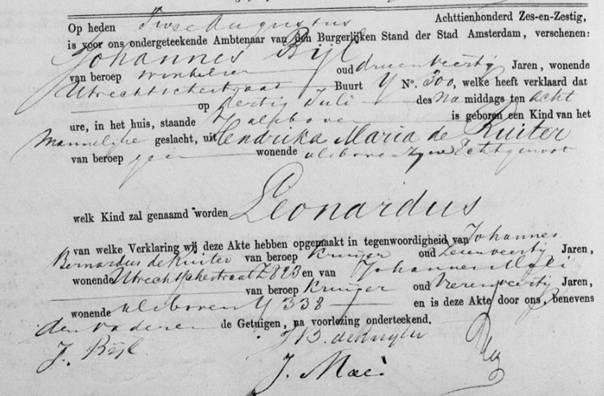 Op heden Twee Augustus Achttienhonderd Zes-en-Zestig,
is voor ons ondergeteekende Ambtenaar van den Burgerlijken Stand der Stad Amsterdam, verschenen:
Johannes Bijl
van beroep winkelier oud drieenveertig Jaren, wonende
Utrechtschestraat Buurt Y No. 300, welke heeft verklaard dat
op dertig Juli des Na middags ten acht
ure, in het huis, staande Alsboven is geboren een Kind van het
Mannelijke geslacht, uit Hendrika Maria de Ruiter
van beroep geen wonende alsboven zyne Echtgenoot
welk Kind zal genaamd worden Leonardus
van welke Verklaring wij deze Akte hebben opgemaakt in tegenwoordigheid van Johannes
Bernardus de Ruiter van beroep kruijer oud Jaren,
wonende Utrechtschestraat Z 823 en van Johannes
van beroep kruijer oud Vierenveertig Jaren,
wonende alsboven Y 338 en is deze Akte door ons, benevens
den vader en de Getuigen, na voorlezing onderteekend.
J. Bijl J B de Ruyter
J. Maci